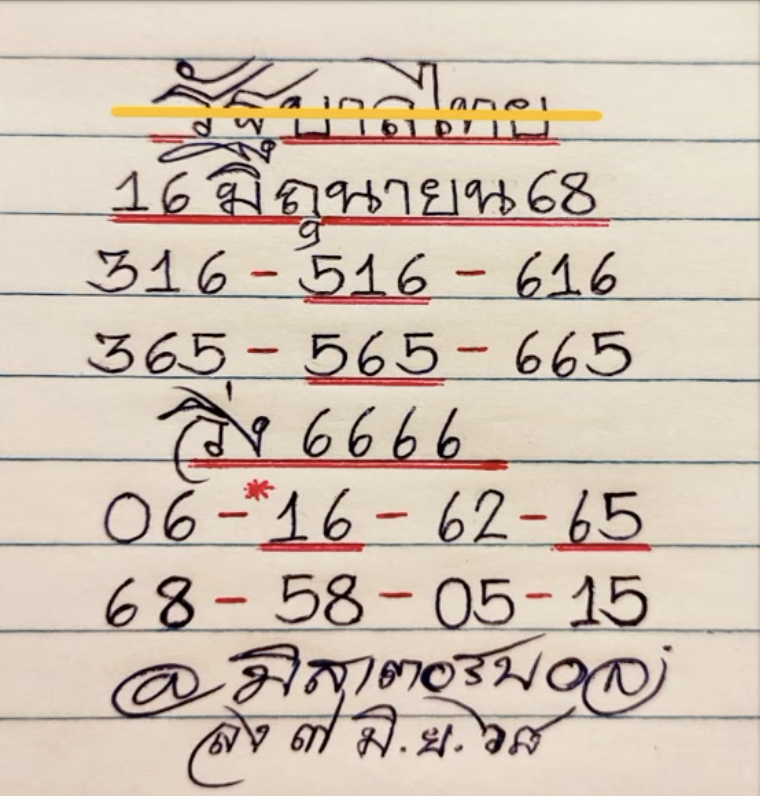 รัฐบาลไทย
16 มิถุนายน 68
316 - 516 - 616
365 - 565 - 665
วิ่ง 6666
06 - *16 - 62 - 65
68 - 58 - 05 - 15
@มิสเตอร์บอล
ลง ๗ มิ.ย. ๖๘